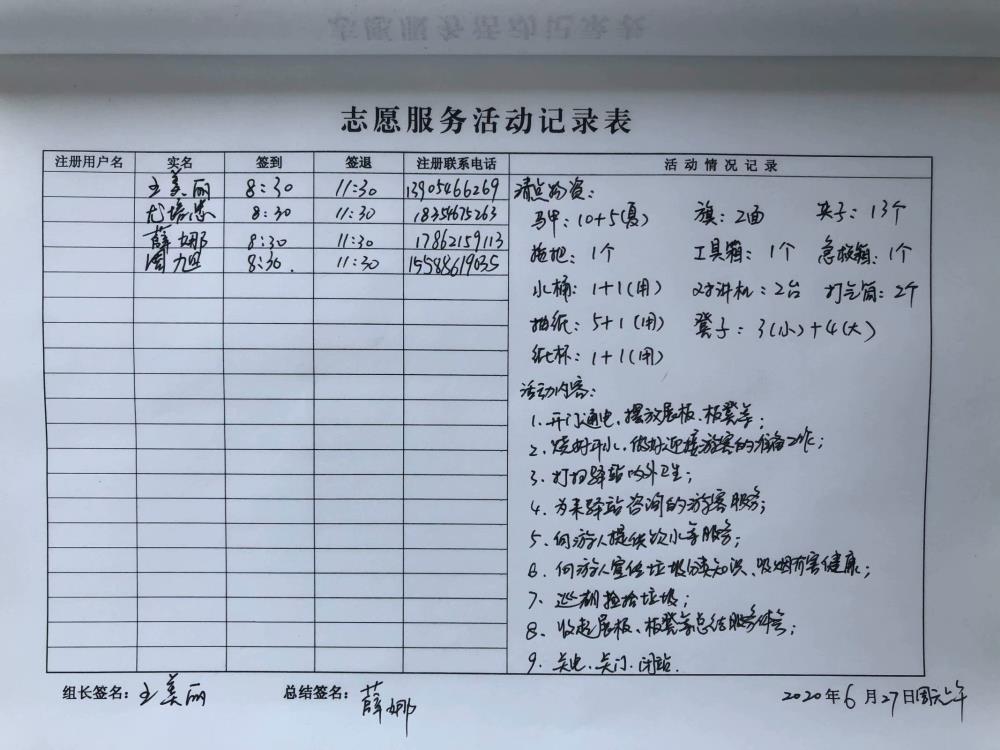 志愿服务活动记录表
注册用户名 实名 签到 签退 注册联系电话 活动情况记录
王美丽 8:30 11:30 13905466269
尤培思 8:30 11:30 18354675263
薛娜 8:30 11:30 17862159113
周旭 8:30. 11:30 15588619035
清点物资:
马甲:10+5(夏) 旗:2面 夹子:13个
拖把:1个 工具箱:1个 急救箱:1个
水桶:1+1(用) 对讲机:2台 打气筒:2个
抽纸:5+1(用) 凳子:3(小)+4(大)
纸杯:1+1(用)
活动内容:
1、开门通电、摆放展板、板凳等;
2、烧好开水、做好迎接游客的准备工作;
3、打扫驿站内外卫生;
4、为来驿站咨询的游客服务;
5、向游人提供饮水等服务;
6、向游人宣传垃圾分类知识、吸烟有害健康;
7、巡湖捡拾垃圾;
8、收起展板、板凳等总结服务体会;
9、关电、关门、闭站.
组长签名:王美丽 总结签名:薛娜 2020年6月27日周六上午